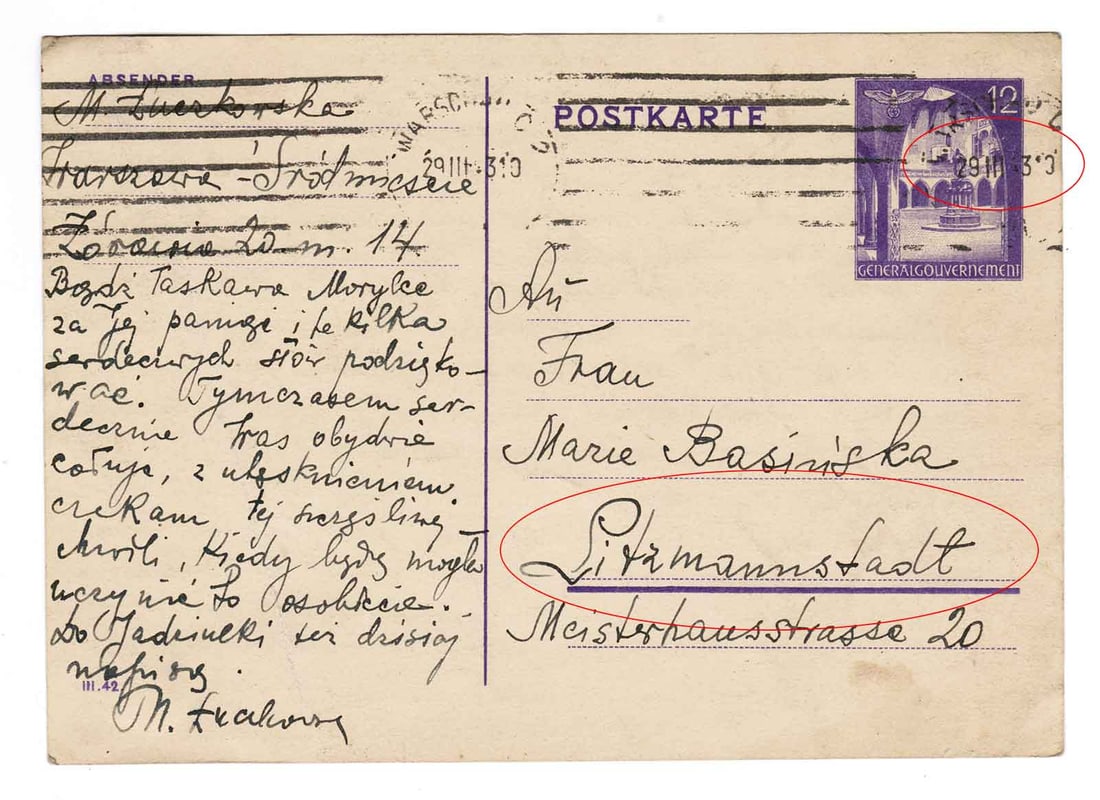 ABSENDER
M. Żurkowska
Warszawa - Śródmieście
Żórawia 20 m. 14
WARSCHAU
29 III 43 10
POSTKARTE
12
29 III 43 10
GENERALGOUVERNEMENT
An
Frau
Marie Basińska
Litzmannstadt
Meisterhausstrasse 20
Bądź łaskawa Morylce
za Jej pamięć i te kilka
serdecznych słów podzięko-
wać. Tymczasem ser-
decznie Was obydwie
całuję, z utęsknieniem
czekam tej szczęśliwej
chwili, kiedy będę mogła
uczynić to osobiście.
Do Jadziulki też dzisiaj
napiszę.
III.42.
M.